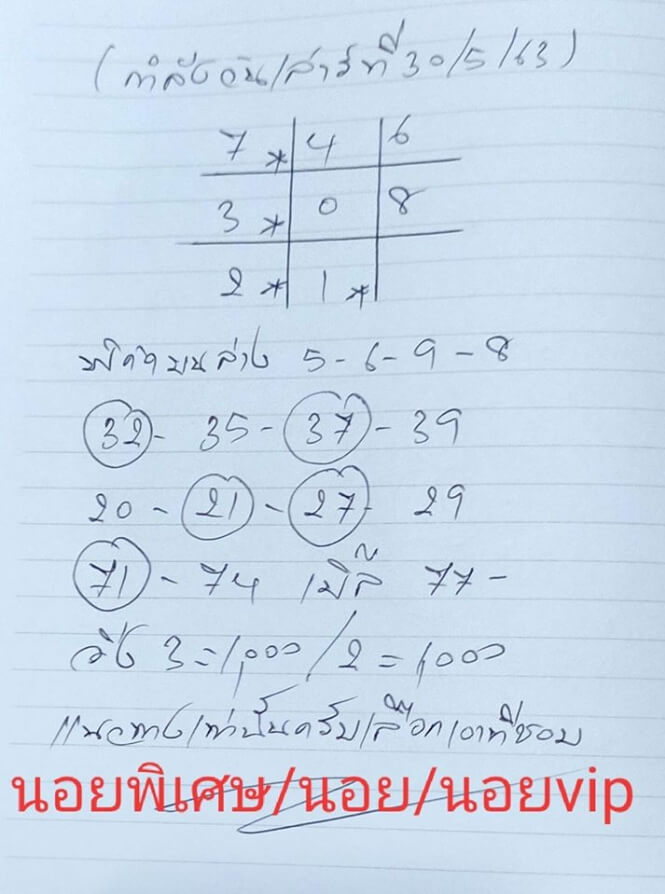 (กำลังวันเสาร์ที่ 30/5/63)
7* 4 6
3* 0 8
2* 1*
บนล่าง 5-6-9-8
32 - 35 - 37 - 39
20 - 21 - 27 - 29
71 - 74 เบิ้ล 77 -
วิ่ง 3 = 1,000 / 2 = 1,000
แนวทางเท่านั้นครับเลือกเอาที่ชอบ
นอยพิเศษ/นอย/นอยvip